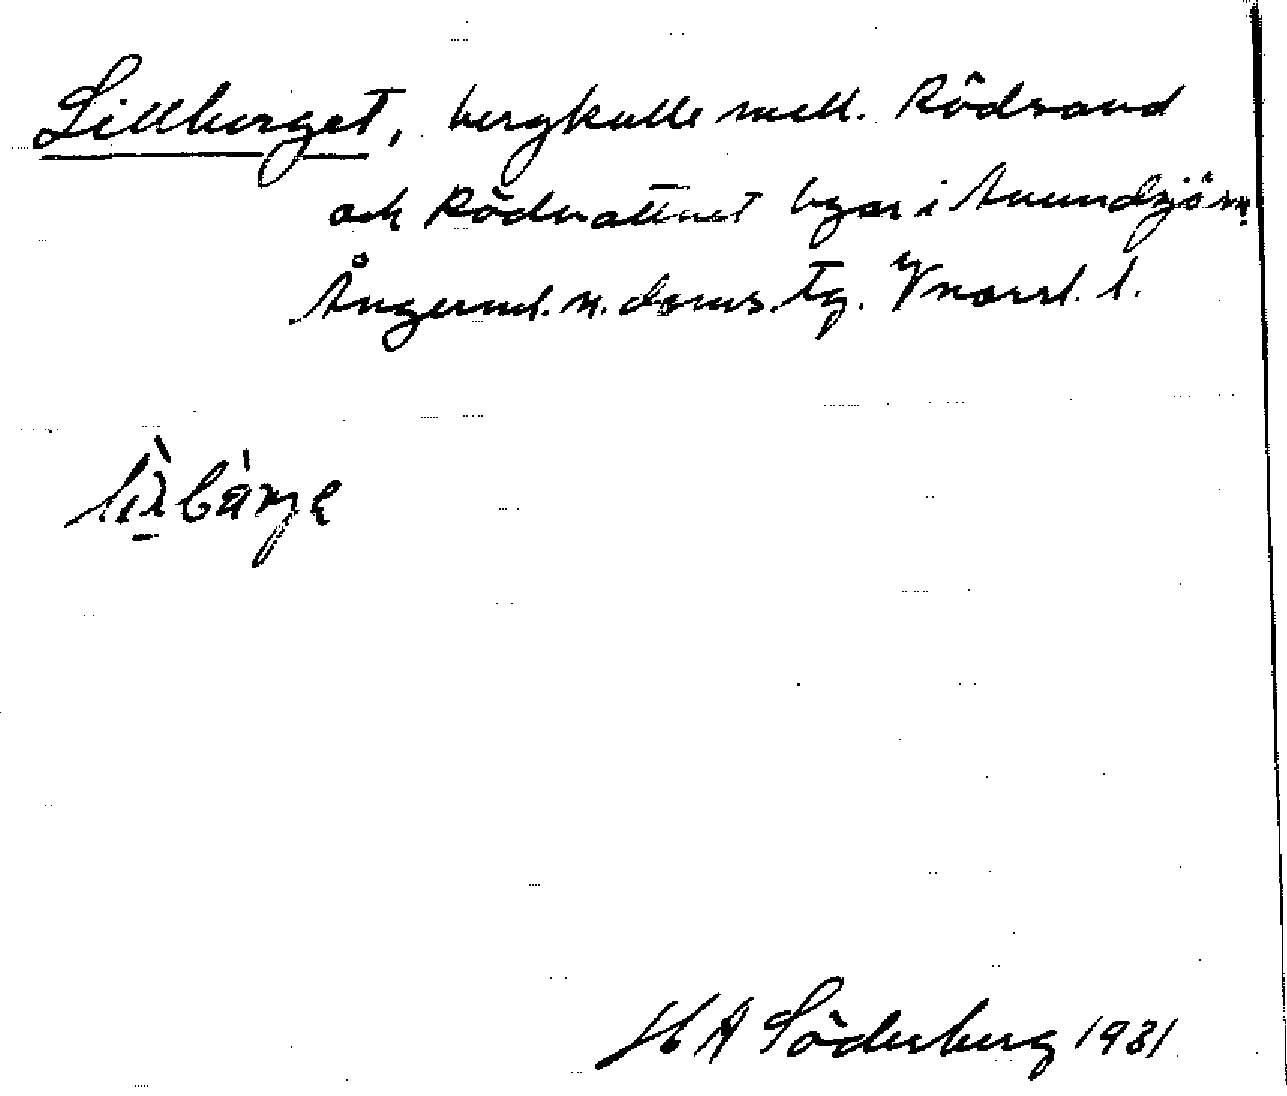 Lillberget, bergkulle mell. Rödsand
och Rödvattnet byar i Anundsjö sn.
Ångerml. n. doms. tg. Vnorrl. l.
lìlbàrje
H A Söderberg 1931